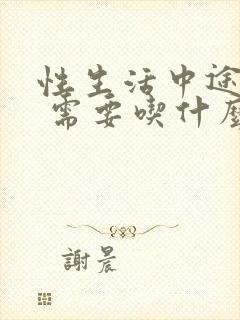 性生活中途
需要喫什
謝晨